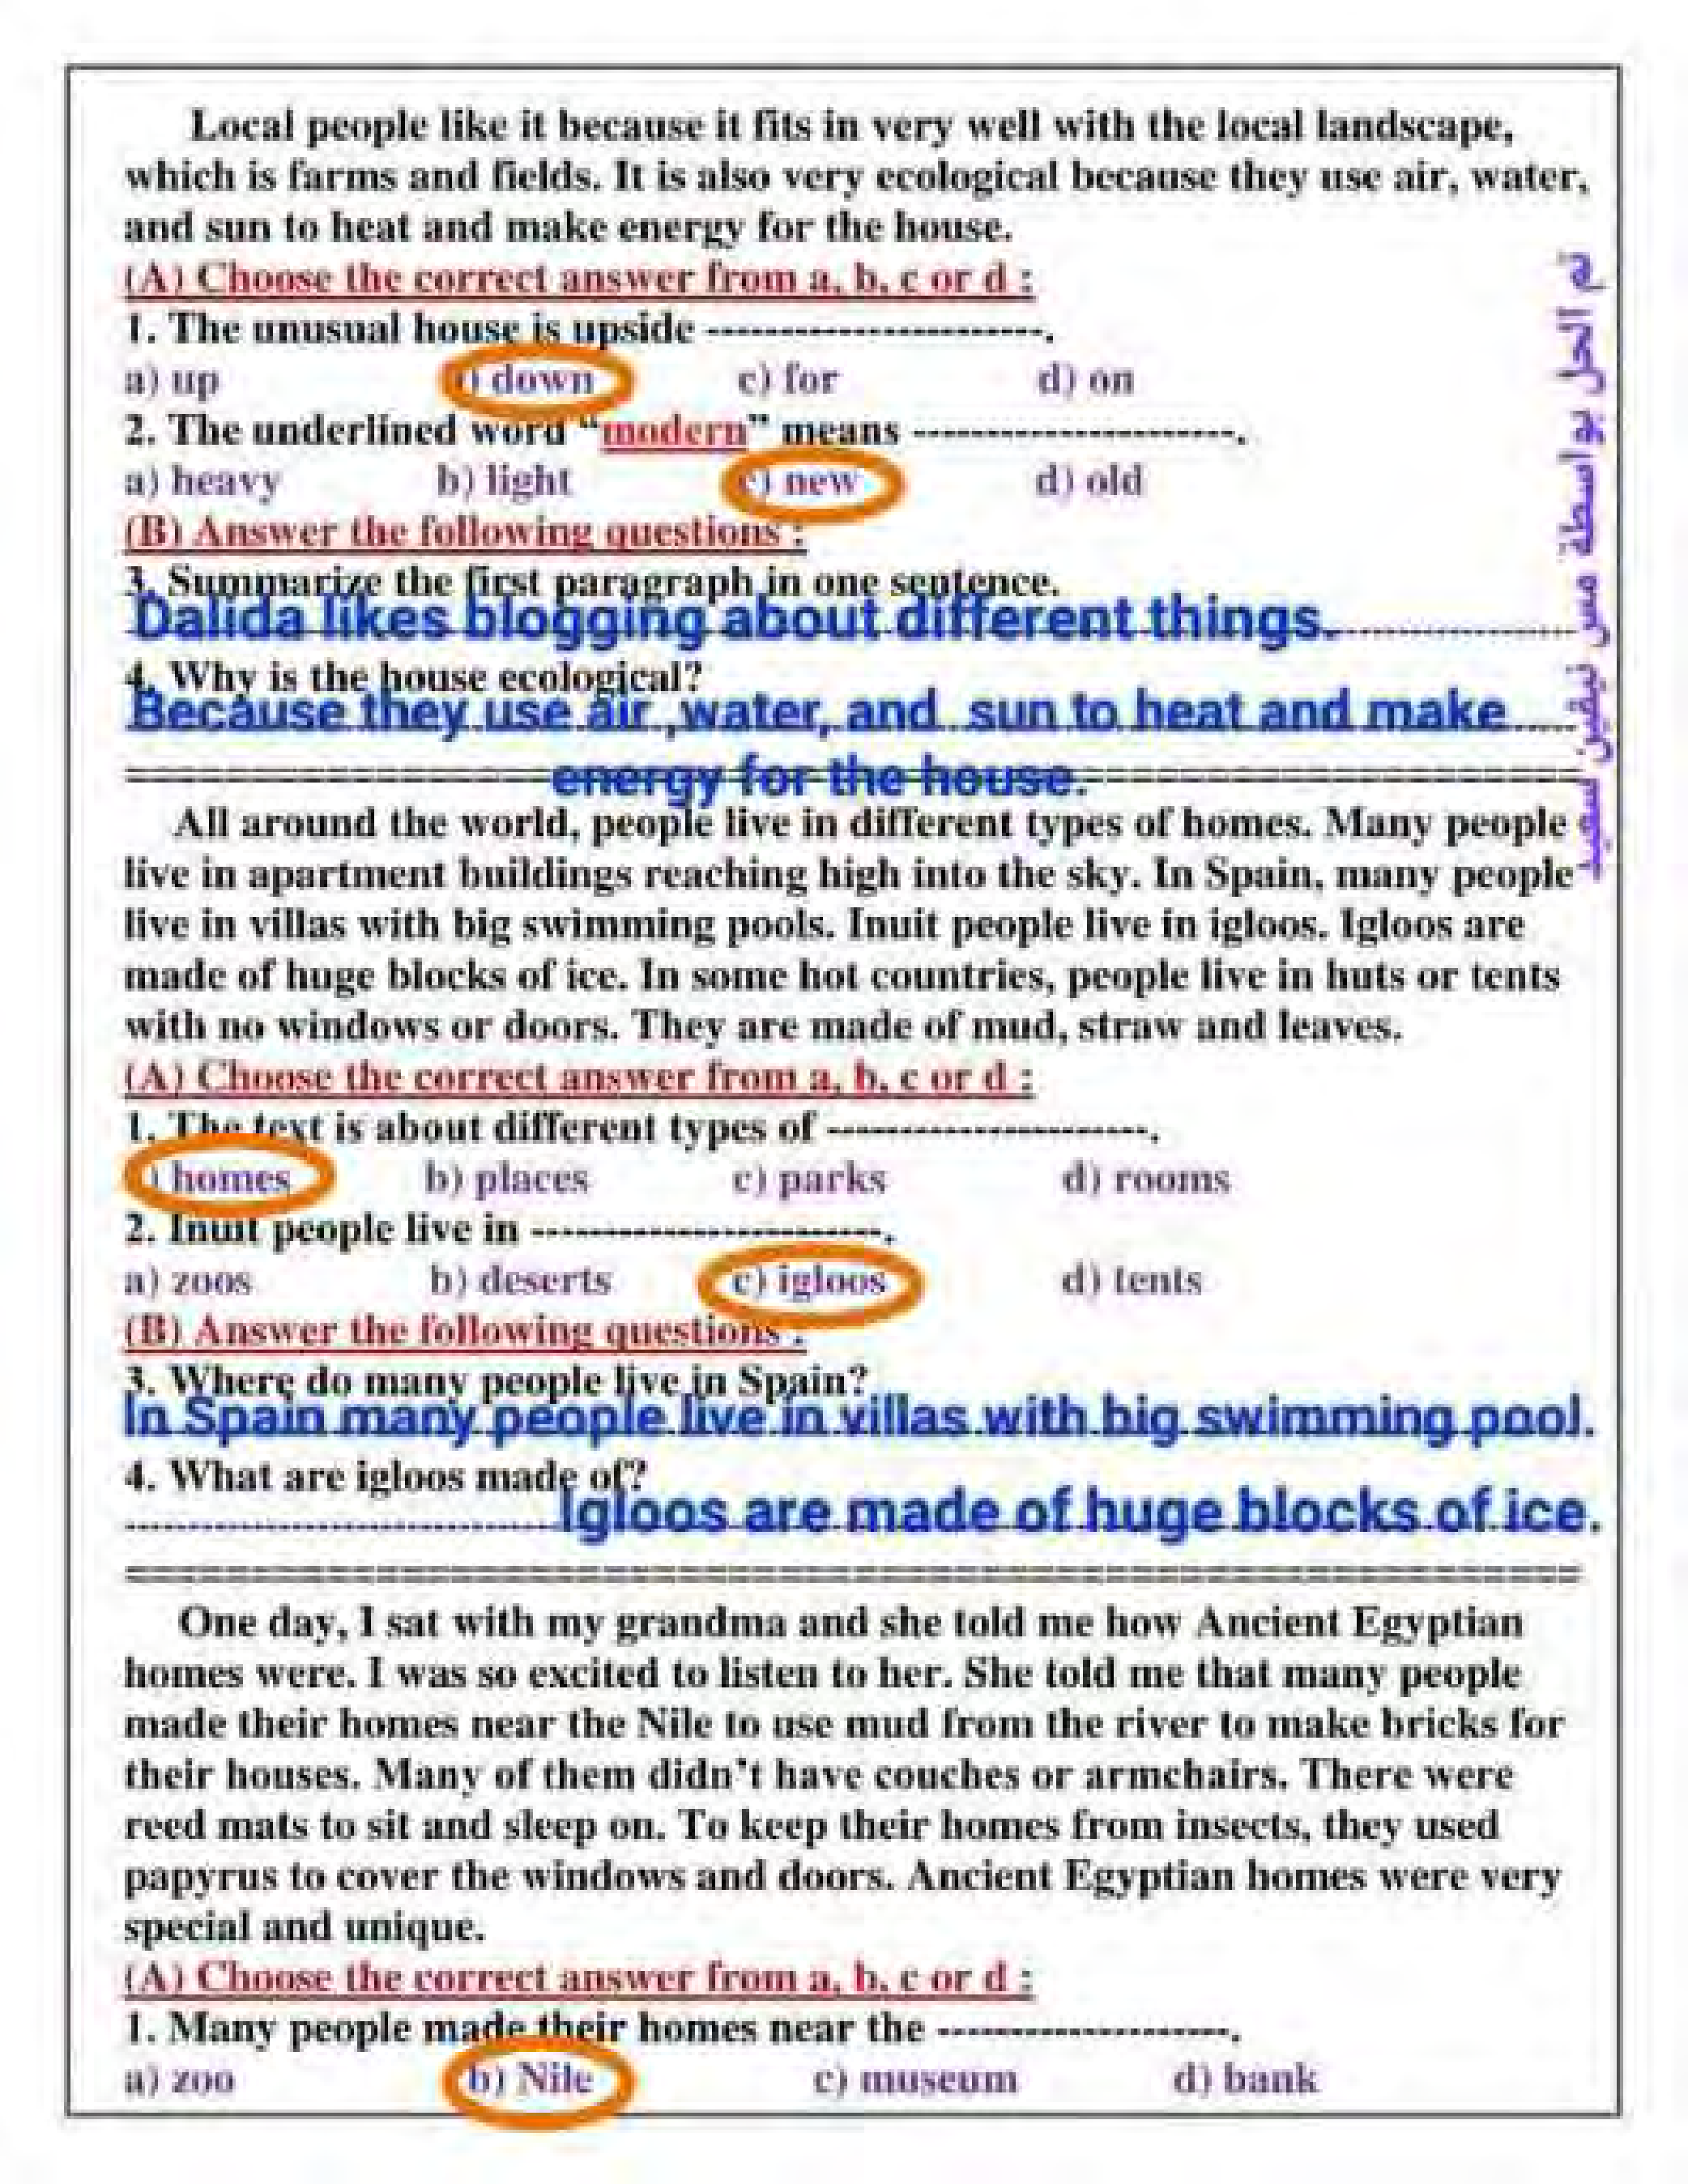 Local people like it because it fits in very well with the local landscape,
which is farms and fields. It is also very ecological because they use air, water,
and sun to heat and make energy for the house.
(A) Choose the correct answer from a, b, c or d :
1. The unusual house is upside -----------------------.
a) up ) down c) for d) on
2. The underlined word “modern” means ----------------------.
a) heavy b) light c) new d) old
(B) Answer the following questions :
3. Summarize the first paragraph in one sentence.
Dalida likes blogging about different things.
4. Why is the house ecological?
Because they use air ,water, and sun to heat and make
energy for the house.
All around the world, people live in different types of homes. Many people
live in apartment buildings reaching high into the sky. In Spain, many people
live in villas with big swimming pools. Inuit people live in igloos. Igloos are
made of huge blocks of ice. In some hot countries, people live in huts or tents
with no windows or doors. They are made of mud, straw and leaves.
(A) Choose the correct answer from a, b, c or d :
1. The text is about different types of ----------------------.
) homes b) places c) parks d) rooms
2. Inuit people live in ------------------------.
a) zoos b) deserts c) igloos d) tents
(B) Answer the following questions :
3. Where do many people live in Spain?
In Spain many people live in villas with big swimming pool.
4. What are igloos made of?
Igloos are made of huge blocks of ice.
One day, I sat with my grandma and she told me how Ancient Egyptian
homes were. I was so excited to listen to her. She told me that many people
made their homes near the Nile to use mud from the river to make bricks for
their houses. Many of them didn’t have couches or armchairs. There were
reed mats to sit and sleep on. To keep their homes from insects, they used
papyrus to cover the windows and doors. Ancient Egyptian homes were very
special and unique.
(A) Choose the correct answer from a, b, c or d :
1. Many people made their homes near the --------------------.
a) zoo b) Nile c) museum d) bank
تم الحل بواسطة مس نيفين سعيد